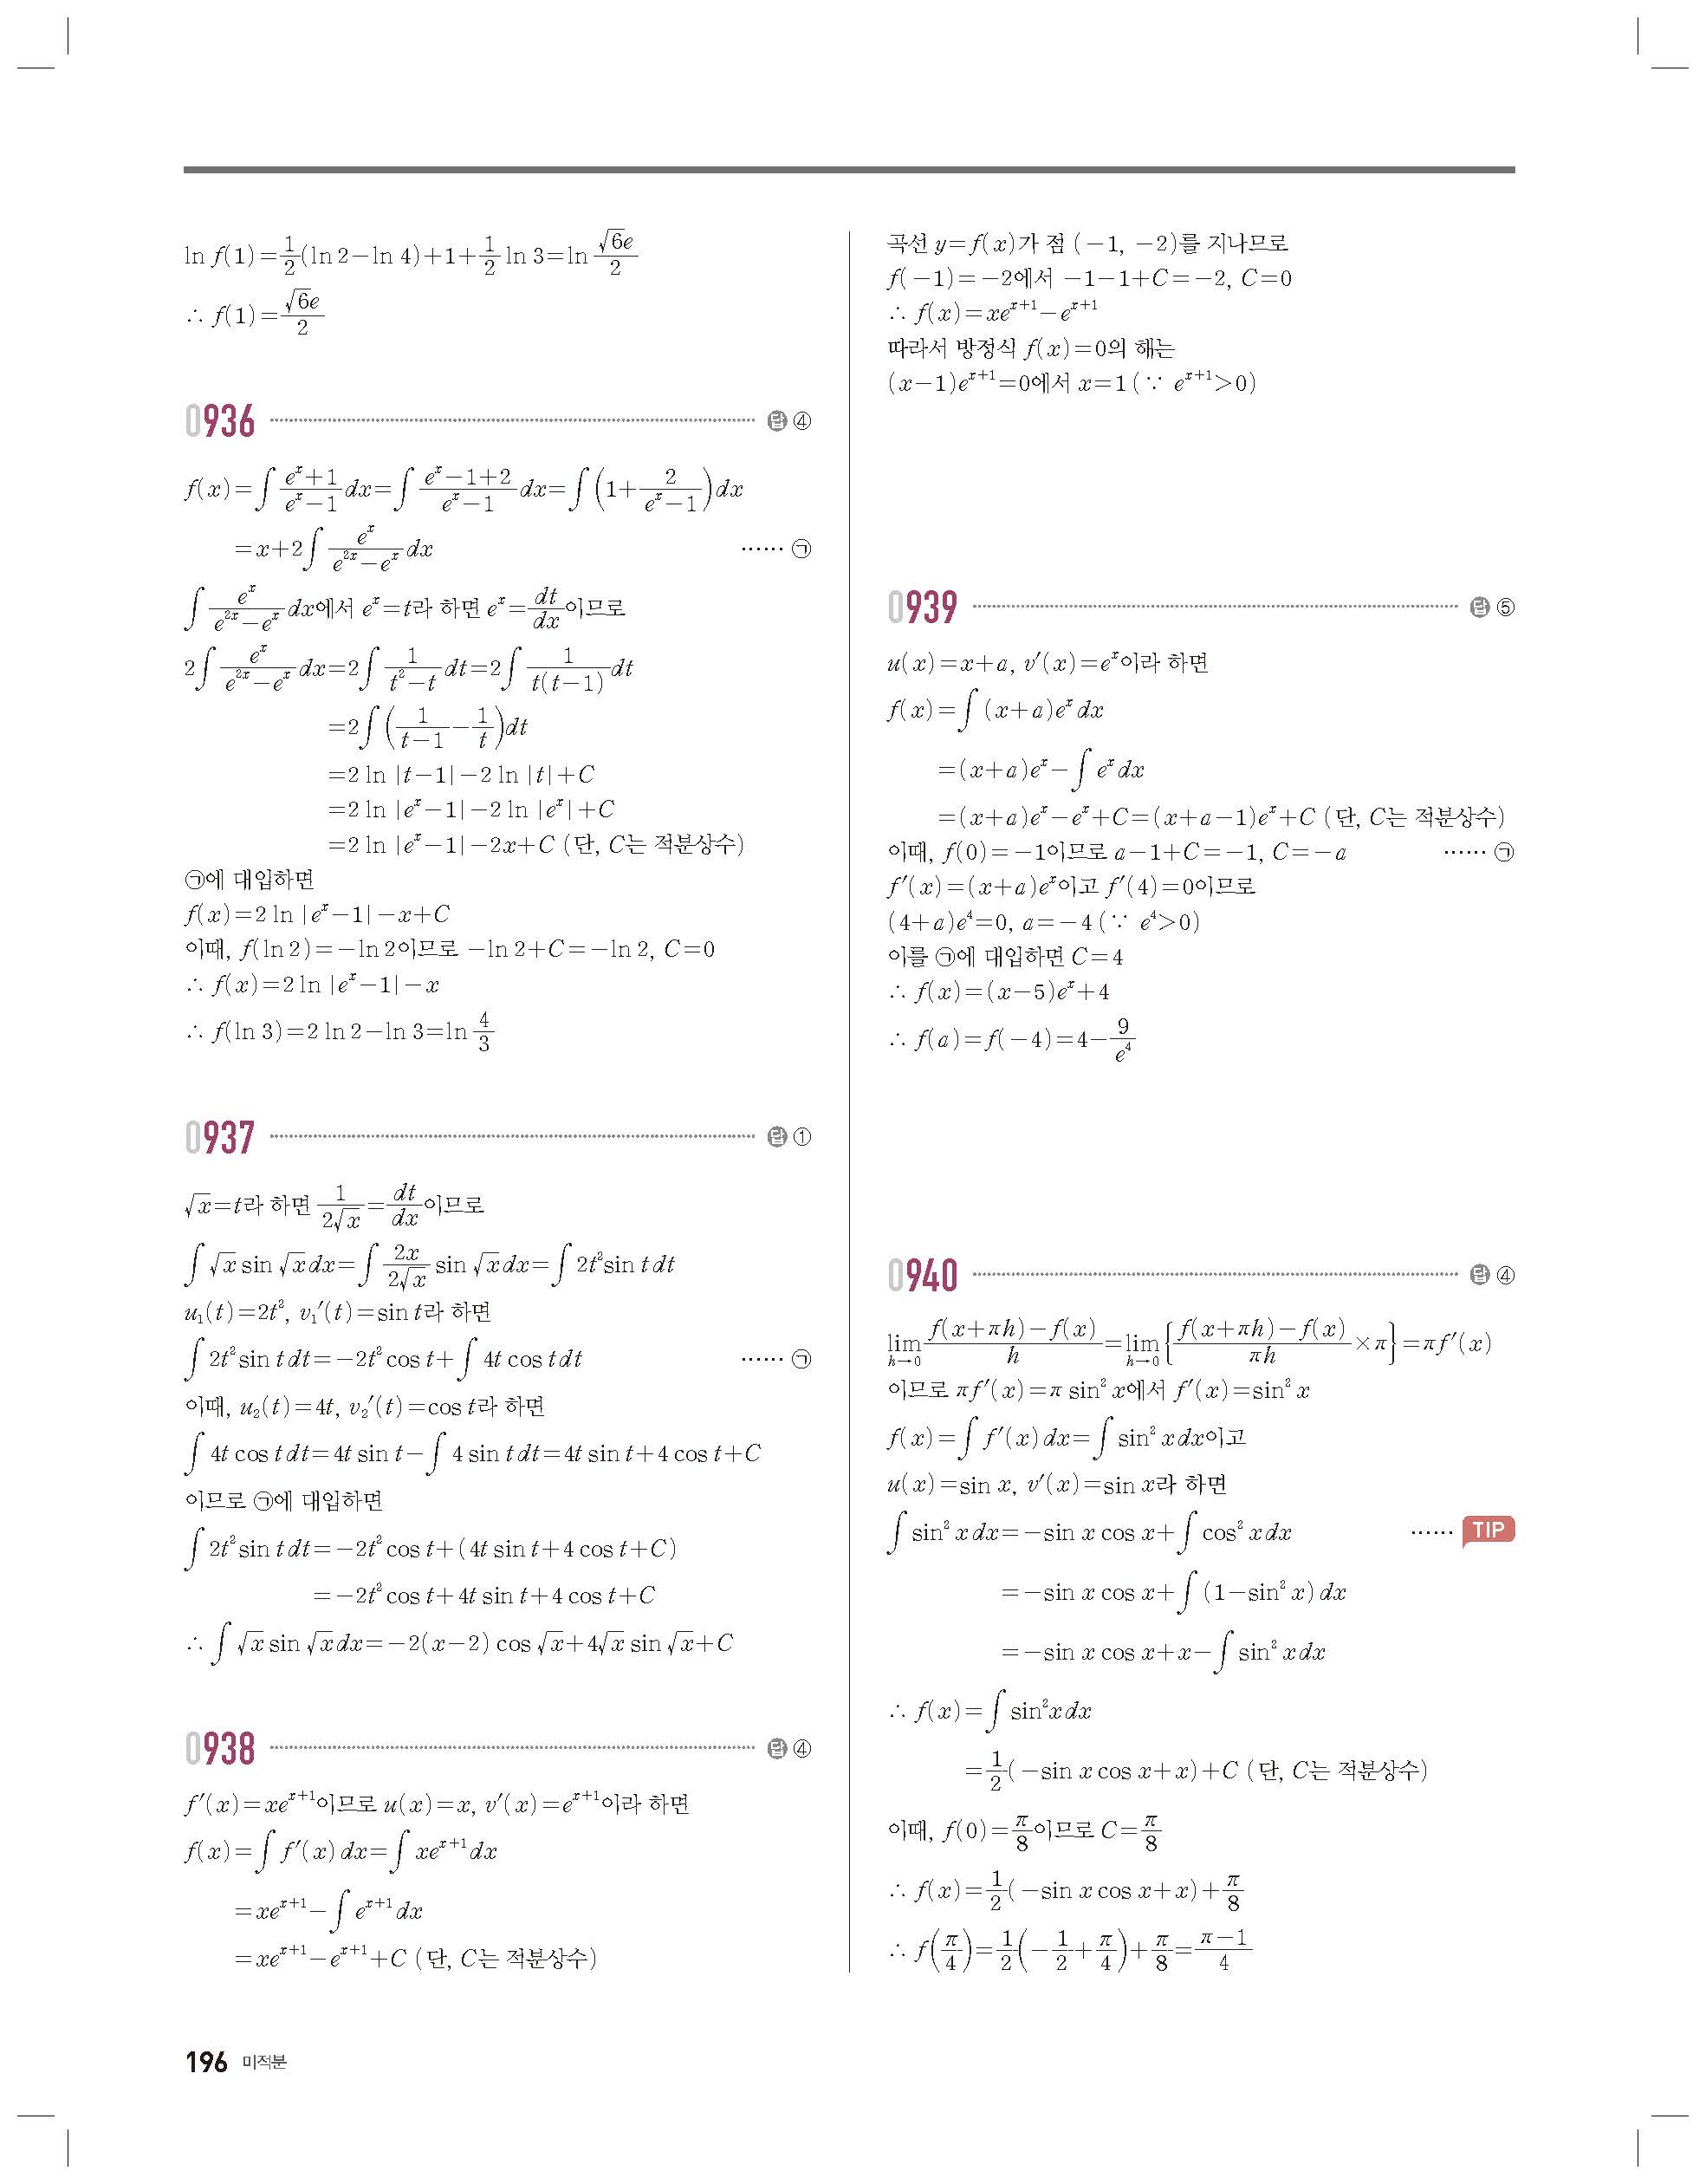 ln f(1)=1/2(ln 2−ln 4)+1+1/2 ln 3=ln √6e/2
∴ f(1)=√6e/2
0936 답 ④
f(x)=∫ (eˣ+1)/(eˣ−1) dx=∫ (eˣ−1+2)/(eˣ−1) dx=∫ (1+2/(eˣ−1))dx
=x+2∫ eˣ/(e²ˣ−eˣ) dx …… ㉠
∫ eˣ/(e²ˣ−eˣ) dx에서 eˣ=t라 하면 eˣ=dt/dx이므로
2∫ eˣ/(e²ˣ−eˣ) dx=2∫ 1/(t²−t) dt=2∫ 1/(t(t−1)) dt
=2∫ (1/(t−1)−1/t)dt
=2 ln |t−1|−2 ln |t|+C
=2 ln |eˣ−1|−2 ln |eˣ|+C
=2 ln |eˣ−1|−2x+C (단, C는 적분상수)
㉠에 대입하면
f(x)=2 ln |eˣ−1|−x+C
이때, f(ln 2)=−ln 2이므로 −ln 2+C=−ln 2, C=0
∴ f(x)=2 ln |eˣ−1|−x
∴ f(ln 3)=2 ln 2−ln 3=ln 4/3
0937 답 ①
√x=t라 하면 1/(2√x)=dt/dx이므로
∫ √x sin √x dx=∫ 2x/(2√x) sin √x dx=∫ 2t² sin t dt
u₁(t)=2t², v₁′(t)=sin t라 하면
∫ 2t² sin t dt=−2t² cos t+∫ 4t cos t dt …… ㉠
이때, u₂(t)=4t, v₂′(t)=cos t라 하면
∫ 4t cos t dt=4t sin t−∫ 4 sin t dt=4t sin t+4 cos t+C
이므로 ㉠에 대입하면
∫ 2t² sin t dt=−2t² cos t+(4t sin t+4 cos t+C)
=−2t² cos t+4t sin t+4 cos t+C
∴ ∫ √x sin √x dx=−2(x−2) cos √x+4√x sin √x+C
0938 답 ④
f′(x)=xeˣ⁺¹이므로 u(x)=x, v′(x)=eˣ⁺¹이라 하면
f(x)=∫ f′(x) dx=∫ xeˣ⁺¹ dx
=xeˣ⁺¹−∫ eˣ⁺¹ dx
=xeˣ⁺¹−eˣ⁺¹+C (단, C는 적분상수)
곡선 y=f(x)가 점 (−1, −2)를 지나므로
f(−1)=−2에서 −1−1+C=−2, C=0
∴ f(x)=xeˣ⁺¹−eˣ⁺¹
따라서 방정식 f(x)=0의 해는
(x−1)eˣ⁺¹=0에서 x=1 (∵ eˣ⁺¹>0)
0939 답 ⑤
u(x)=x+a, v′(x)=eˣ이라 하면
f(x)=∫ (x+a)eˣ dx
=(x+a)eˣ−∫ eˣ dx
=(x+a)eˣ−eˣ+C=(x+a−1)eˣ+C (단, C는 적분상수)
이때, f(0)=−1이므로 a−1+C=−1, C=−a …… ㉠
f′(x)=(x+a)eˣ이고 f′(4)=0이므로
(4+a)e⁴=0, a=−4 (∵ e⁴>0)
이를 ㉠에 대입하면 C=4
∴ f(x)=(x−5)eˣ+4
∴ f(a)=f(−4)=4−9/e⁴
0940 답 ④
lim h→0 (f(x+πh)−f(x))/h=lim h→0 {(f(x+πh)−f(x))/πh×π}=πf′(x)
이므로 πf′(x)=π sin² x에서 f′(x)=sin² x
f(x)=∫ f′(x) dx=∫ sin² x dx이고
u(x)=sin x, v′(x)=sin x라 하면
∫ sin² x dx=−sin x cos x+∫ cos² x dx …… TIP
=−sin x cos x+∫ (1−sin² x) dx
=−sin x cos x+x−∫ sin² x dx
∴ f(x)=∫ sin²x dx
=1/2(−sin x cos x+x)+C (단, C는 적분상수)
이때, f(0)=π/8이므로 C=π/8
∴ f(x)=1/2(−sin x cos x+x)+π/8
∴ f(π/4)=1/2(−1/2+π/4)+π/8=(π−1)/4
196 미적분